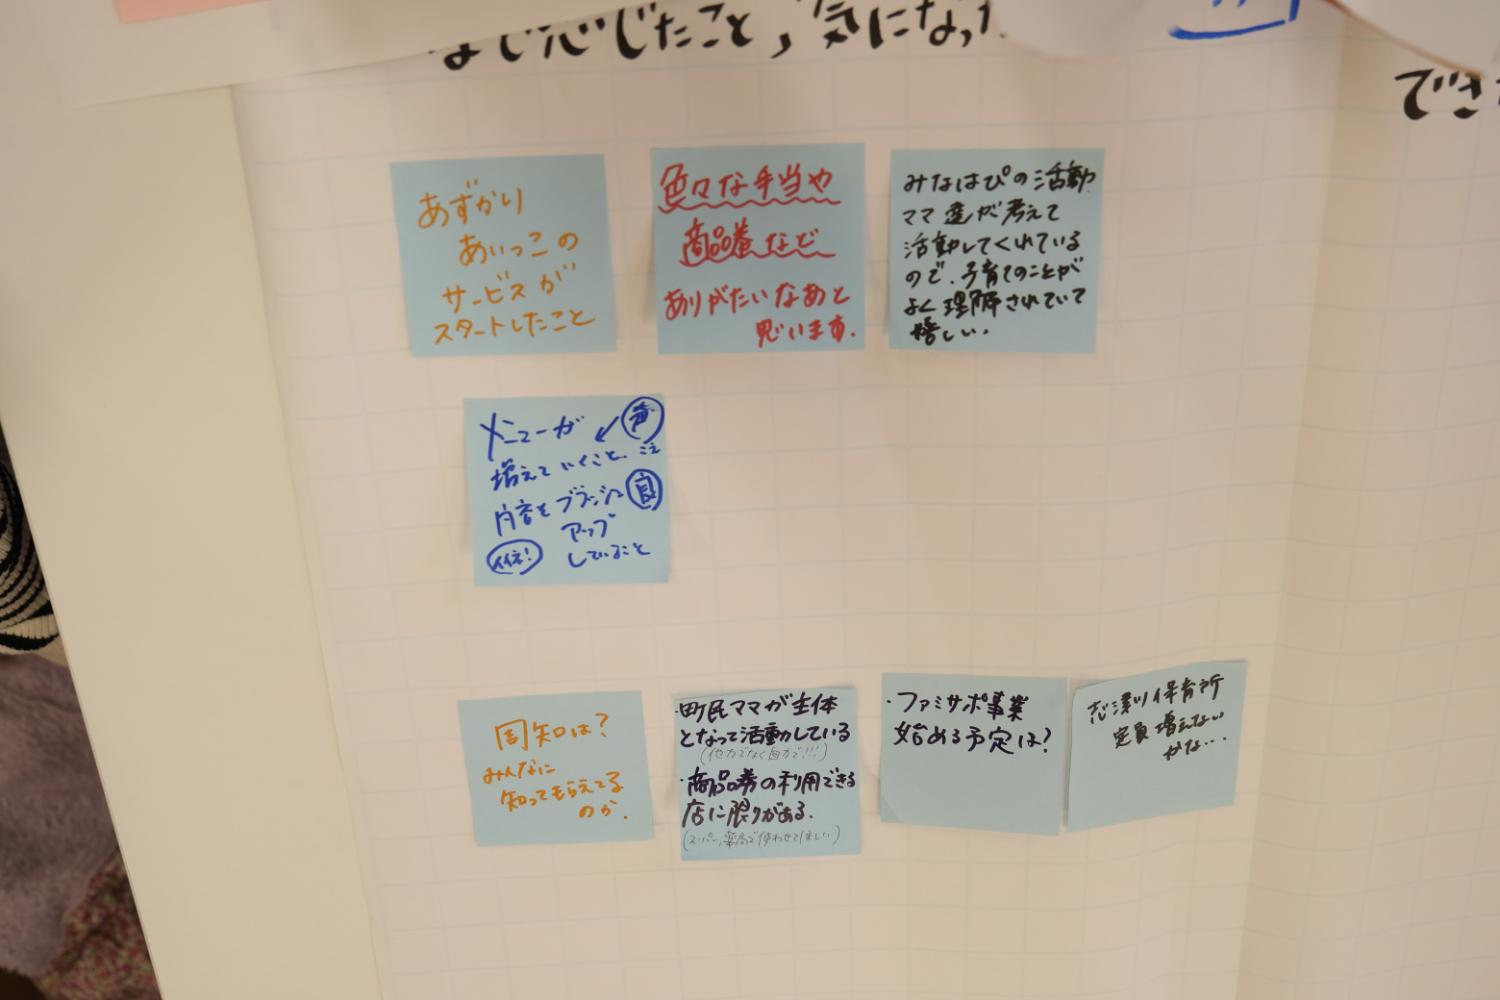 なで感じたこと，気になった
でき
あずかり
あいっこの
サービスが
スタートしたこと
色々な手当や
商品券など
ありがたいなあと
思います．
みなはぴの活動
ママ達が考えて
活動してくれている
ので、子育てのことが
よく理解されていて
嬉しい。
メニューが
声
増えていくこと、こえ
内容をブラッシュ 良
アップ
イイネ！
していること
周知は？
みんなに
知ってもらえてる
のか．
・町民ママが主体
となって活動している
(他力でなく自力で!!!)
・商品券の利用できる
店に限りがある．
(スーパー，薬局で使わせてほしい)
・ファミサポ事業
始める予定は？
保育所
定員増えない
かな…